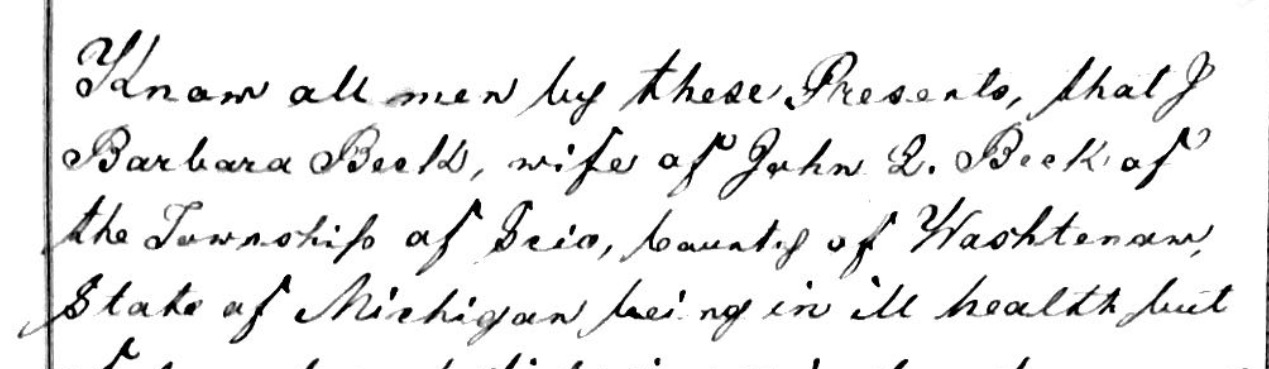 Know all men by these Presents, that I
Barbara Beck, wife of John L. Beck of
the Township of Scio, County of Washtenaw,
State of Michigan being in ill health but